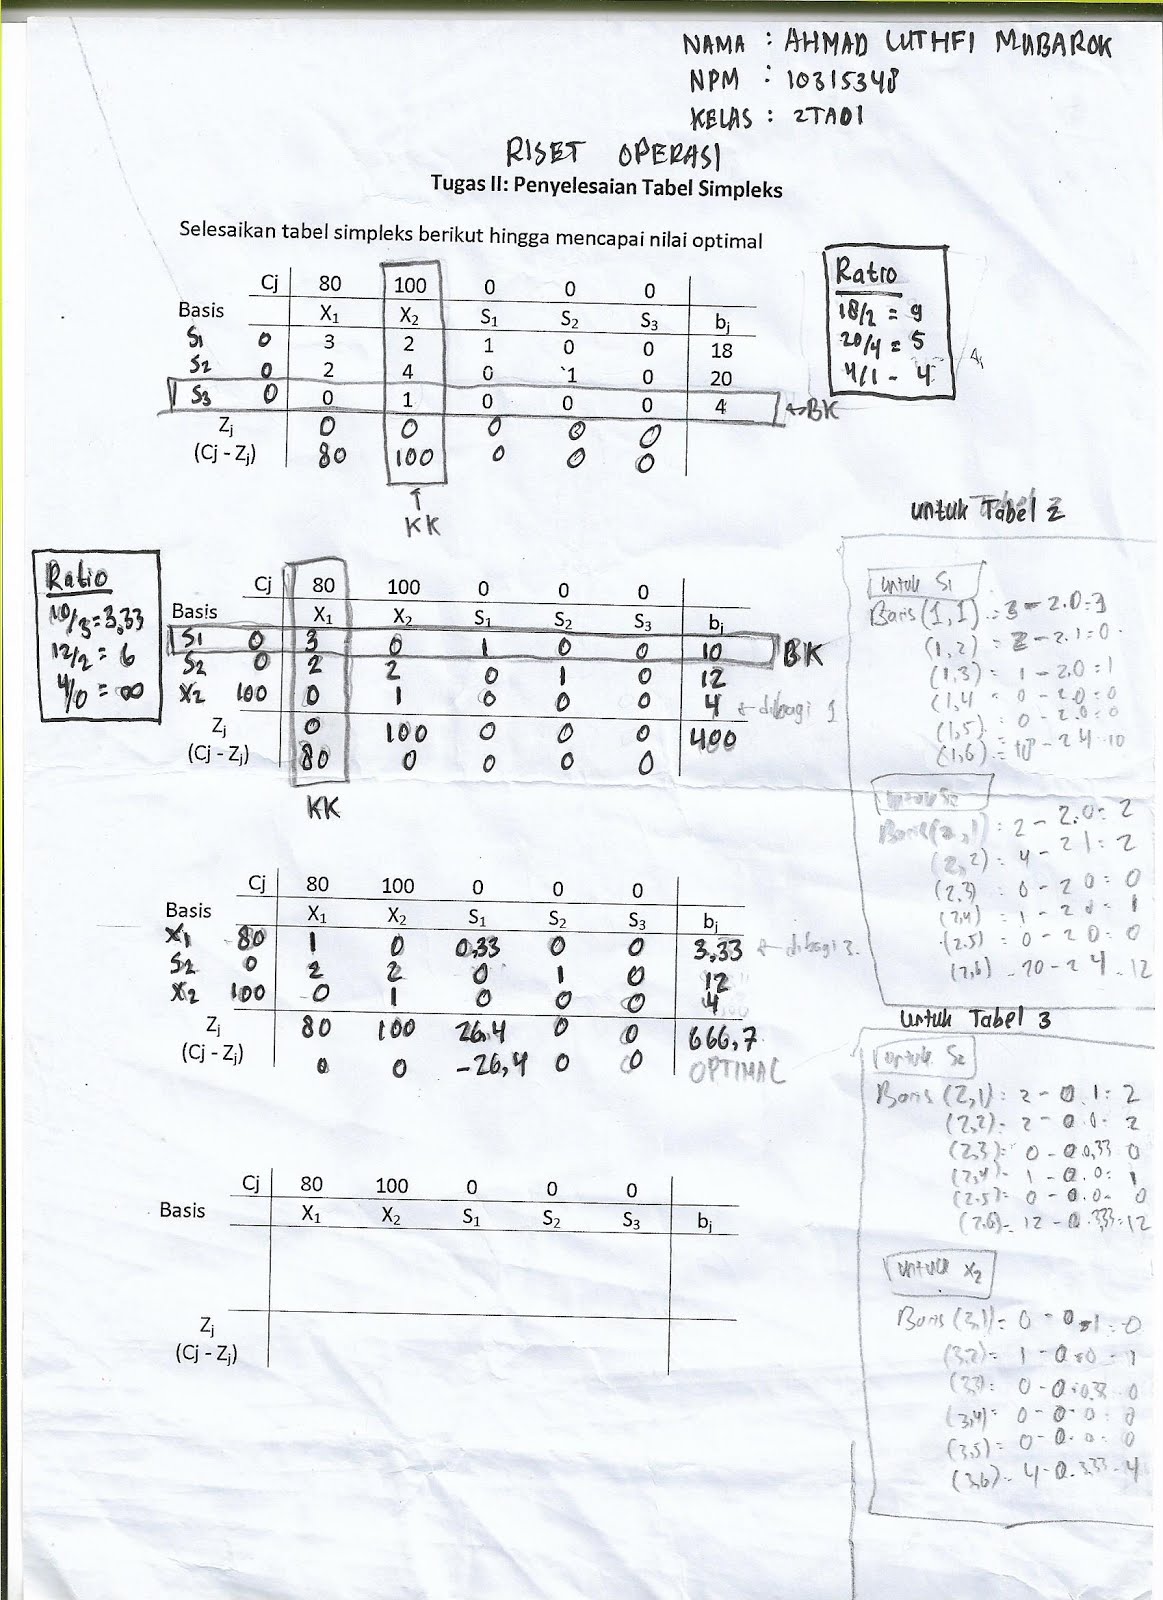 NAMA : AHMAD LUTHFI MUBAROK
NPM : 10315348
KELAS : 2TA01
RISET OPERASI
Tugas II: Penyelesaian Tabel Simpleks
Selesaikan tabel simpleks berikut hingga mencapai nilai optimal
Cj 80 100 0 0 0
Basis X1 X2 S1 S2 S3 bj
S1 0 3 2 1 0 0 18
S2 0 2 4 0 1 0 20
S3 0 0 1 0 0 0 4 ← BK
Zj 0 0 0 0 0
(Cj - Zj) 80 100 0 0 0
↑
KK
Ratio
18/2 = 9
20/4 = 5
4/1 - 4
Ratio
10/3 = 3,33
12/2 = 6
4/0 = ∞
Cj 80 100 0 0 0
Basis X1 X2 S1 S2 S3 bj
S1 0 3 0 1 0 0 10 BK
S2 0 2 2 0 1 0 12
X2 100 0 1 0 0 0 4 ← dibagi 1
Zj 0 100 0 0 0 400
(Cj - Zj) 80 0 0 0 0
KK
Cj 80 100 0 0 0
Basis X1 X2 S1 S2 S3 bj
X1 80 1 0 0,33 0 0 3,33 ← dibagi 3.
S2 0 2 2 0 1 0 12
X2 100 0 1 0 0 0 4
Zj 80 100 26,4 0 0 666,7
(Cj - Zj) 0 0 -26,4 0 0 OPTIMAL
Cj 80 100 0 0 0
Basis X1 X2 S1 S2 S3 bj
Zj
(Cj - Zj)
untuk Tabel 2
untuk S1
Baris (1,1) : 3 - 2.0 = 3
(1,2) = 2 - 2.1 = 0
(1,3) = 1 - 2.0 = 1
(1,4 = 0 - 2.0 = 0
(1,5) = 0 - 2.0 = 0
(1,6) = 18 - 2 4 = 10
untuk S2
Baris (2,1) : 2 - 2.0 = 2
(2,2) = 4 - 2 1 = 2
(2,3) = 0 - 2 0 = 0
(2,4) = 1 - 2 0 = 1
(2,5) = 0 - 2 0 = 0
(2,6) - 20 - 2 4 - 12
untuk Tabel 3
untuk S2
Baris (2,1) : 2 - 0.1 = 2
(2,2) = 2 - 0.0 = 2
(2,3) = 0 - 0.0,33 0
(2,4) = 1 - 0.0 = 1
(2,5) = 0 - 0.0 = 0
(2,6) = 12 - 0.3,33 = 12
untuk X2
Baris (3,1) = 0 - 0.1 = 0
(3,2) = 1 - 0.0 - 1
(3,3) = 0 - 0.0,33 0
(3,4) = 0 - 0.0 = 0
(3,5) = 0 - 0.0 = 0
(3,6) = 4 - 0.3,33 - 4